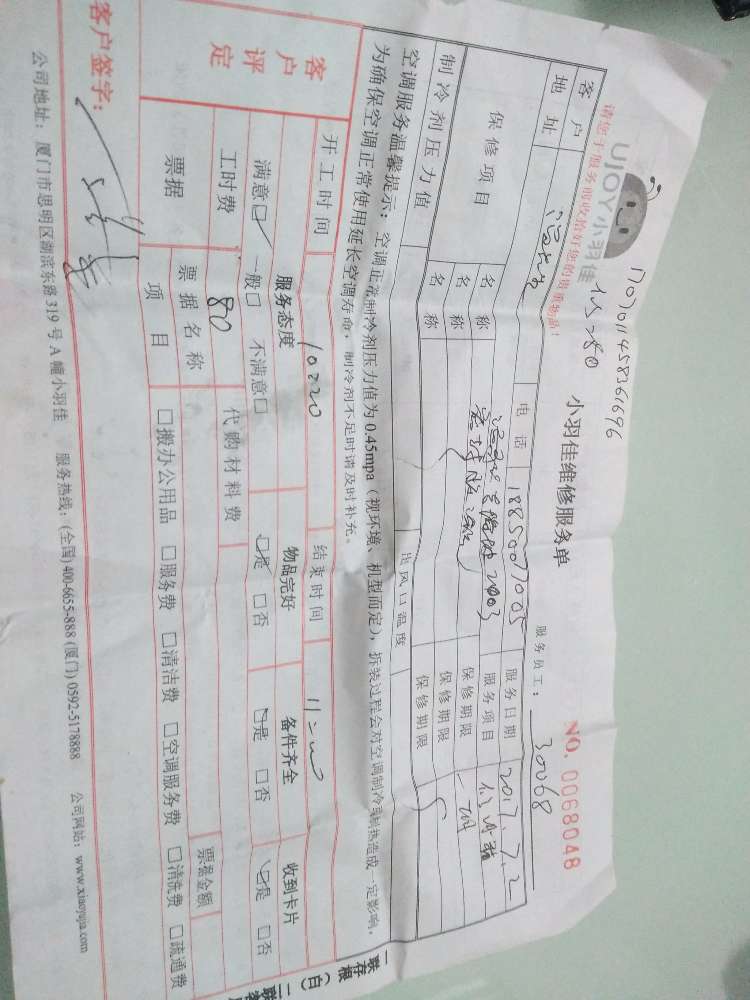 17070114583616​96
UJOY小羽佳
请您于服务前收拾好您的贵重物品!
小羽佳维修服务单
NO. 0068048
服务员工: 30068
客户
电话 18850071005
服务日期 2017.7.2
地址
2003
服务项目
保修项目
名称
保修期限
名称
保修期限
名称
保修期限
制冷剂压力值
出风口温度
空调服务温馨提示:空调正常制冷剂压力值为0.45mpa(视环境、机型而定),拆装过程会对空调制冷或制热造成一定影响,
为确保空调正常使用延长空调寿命,制冷剂不足时请及时补充。
开工时间 10:20
结束时间
客户评定
服务态度
物品完好
备件齐全
收到卡片
满意□ 一般□ 不满意□
□是 □否
□是 □否
□是 □否
工时费 80
代购材料费
票据
票据名称
票据金额
项目
□搬办公用品 □服务费 □清洁费 □空调服务费 □清洗费 □疏通费
客户签字:
公司地址:厦门市思明区湖滨东路319号A幢小羽佳 服务热线:(全国)400-6655-888(厦门)0592-5178888 公司网站:www.xiaoyujia.com
一联存根(白)二联客